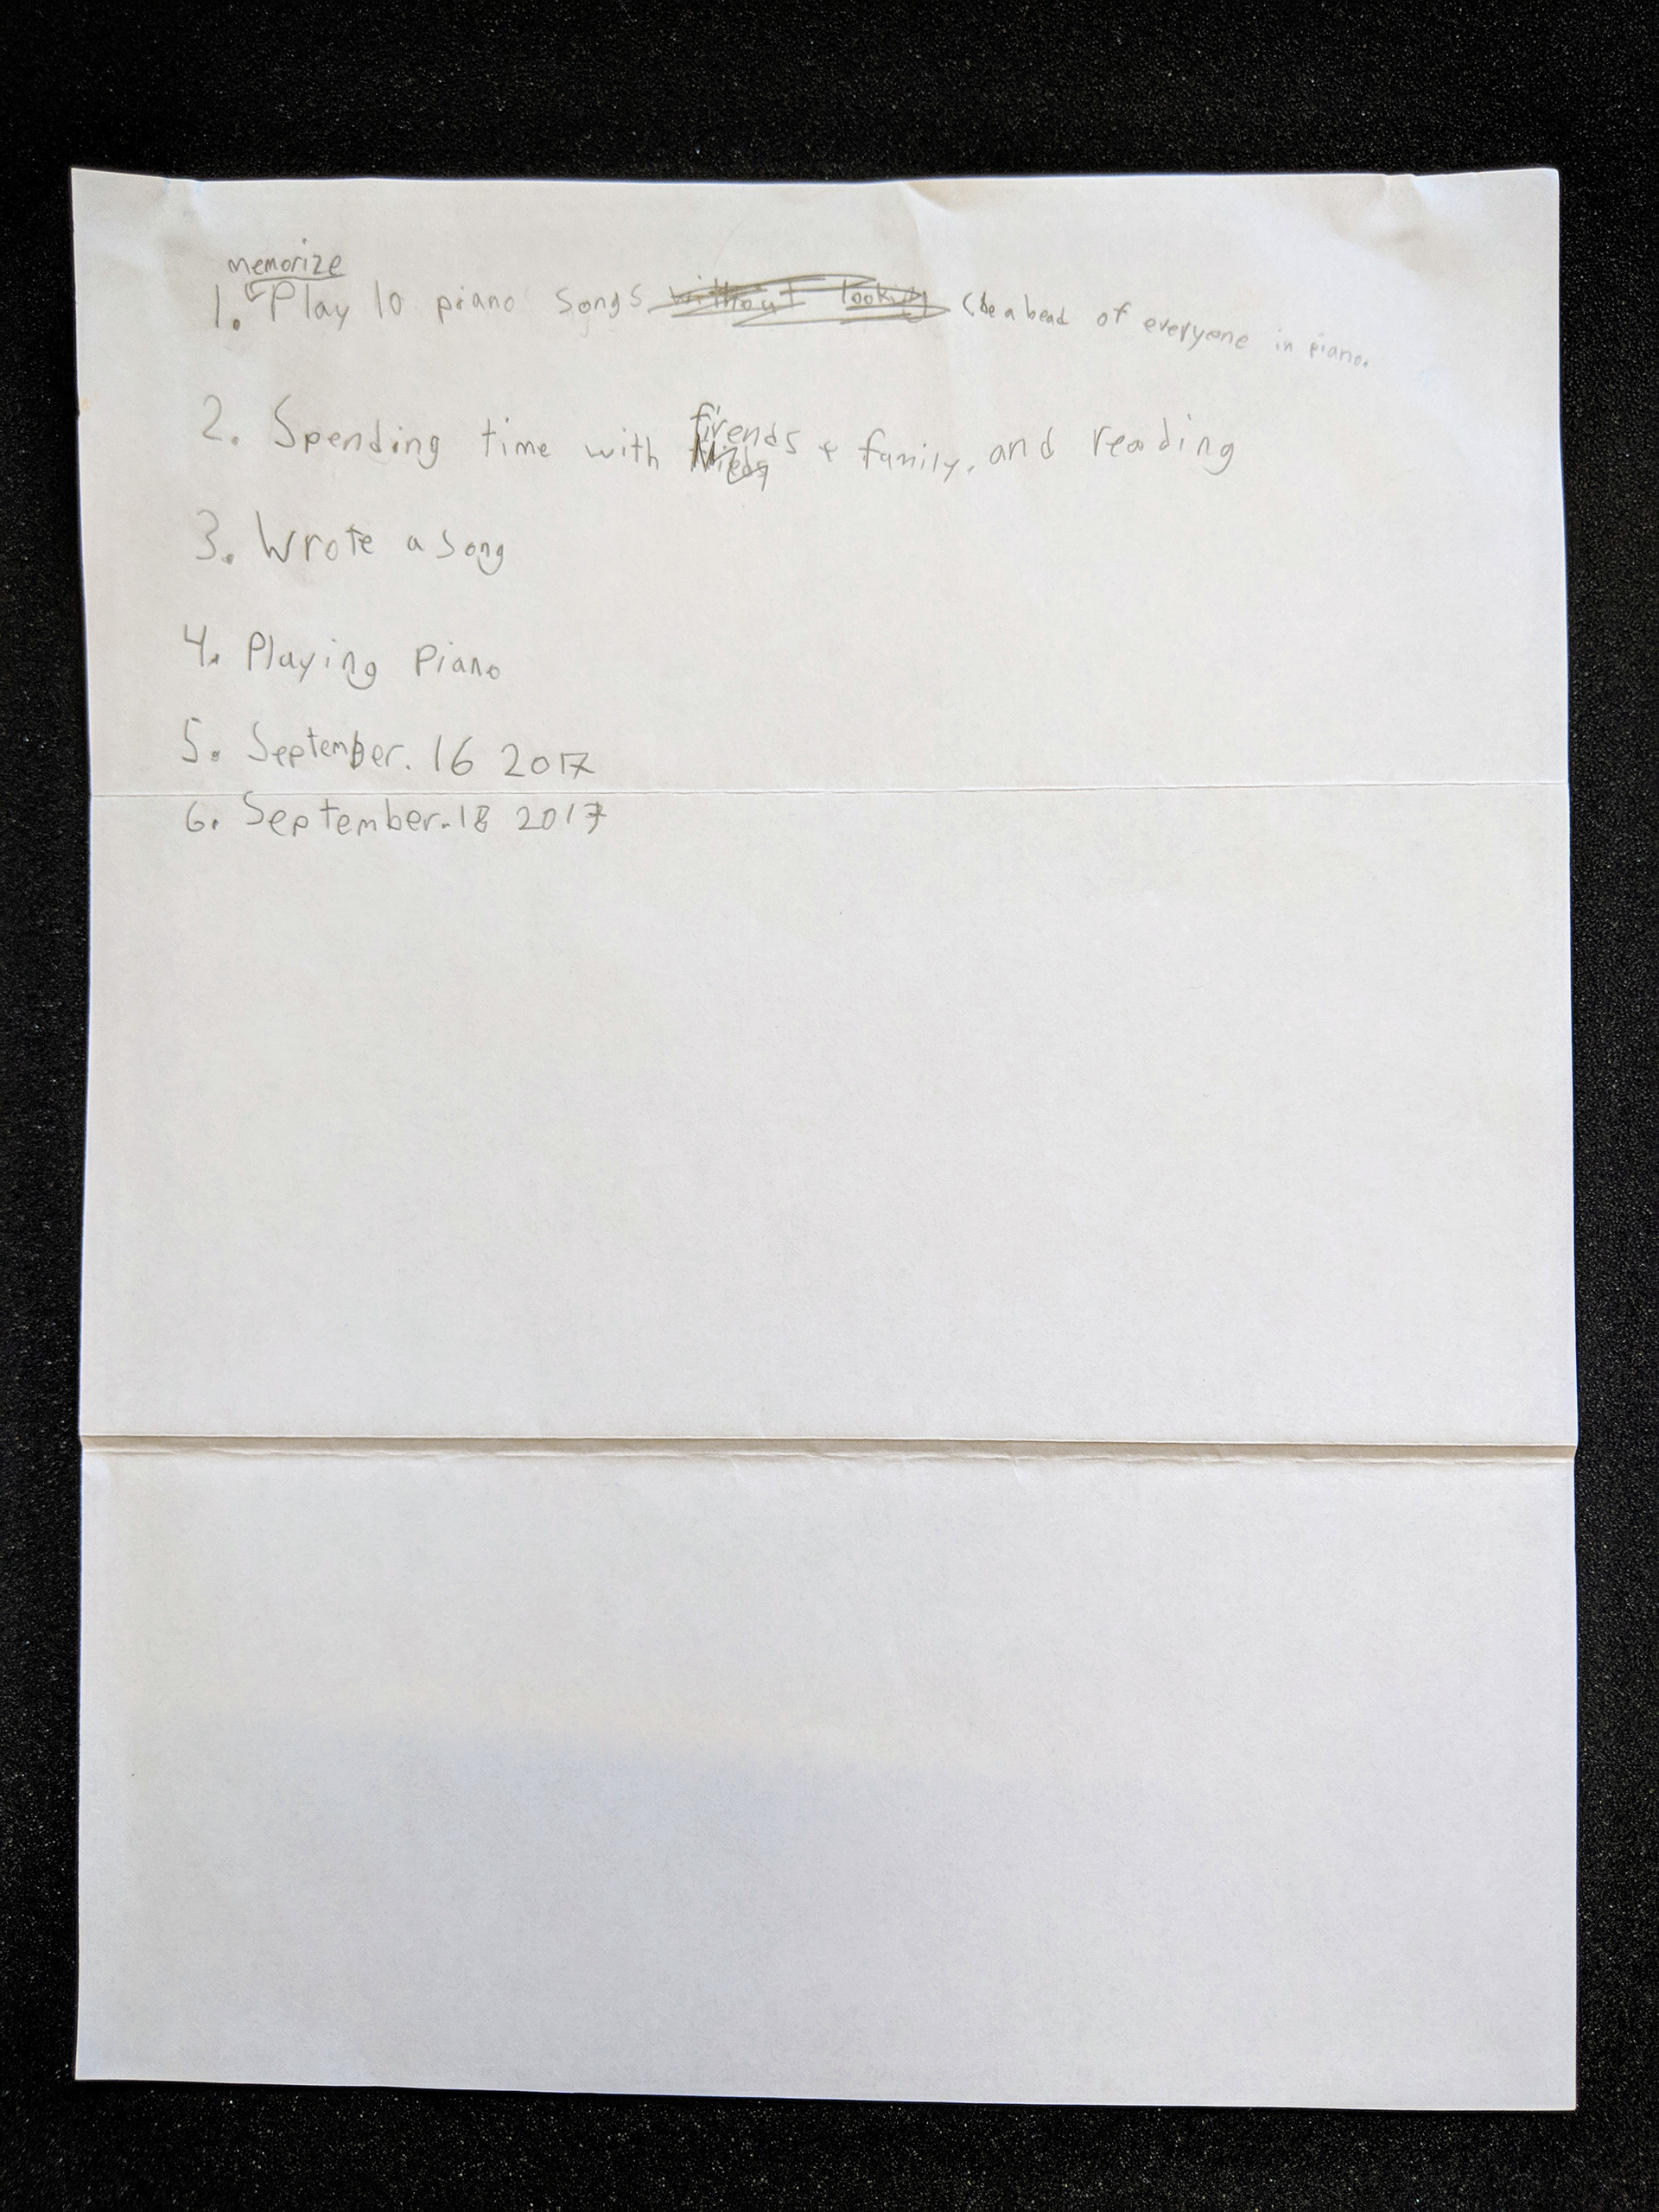 memorize
1. Play 10 piano songs without looking (be ahead of everyone in piano.
2. Spending time with firends + family, and reading
3. Wrote a song
4. Playing Piano
5. September. 16 2017
6. September. 18 2017